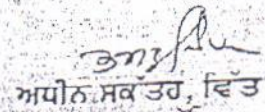 ਅਧੀਨ ਸਕੱਤਰ, ਵਿੱਤ